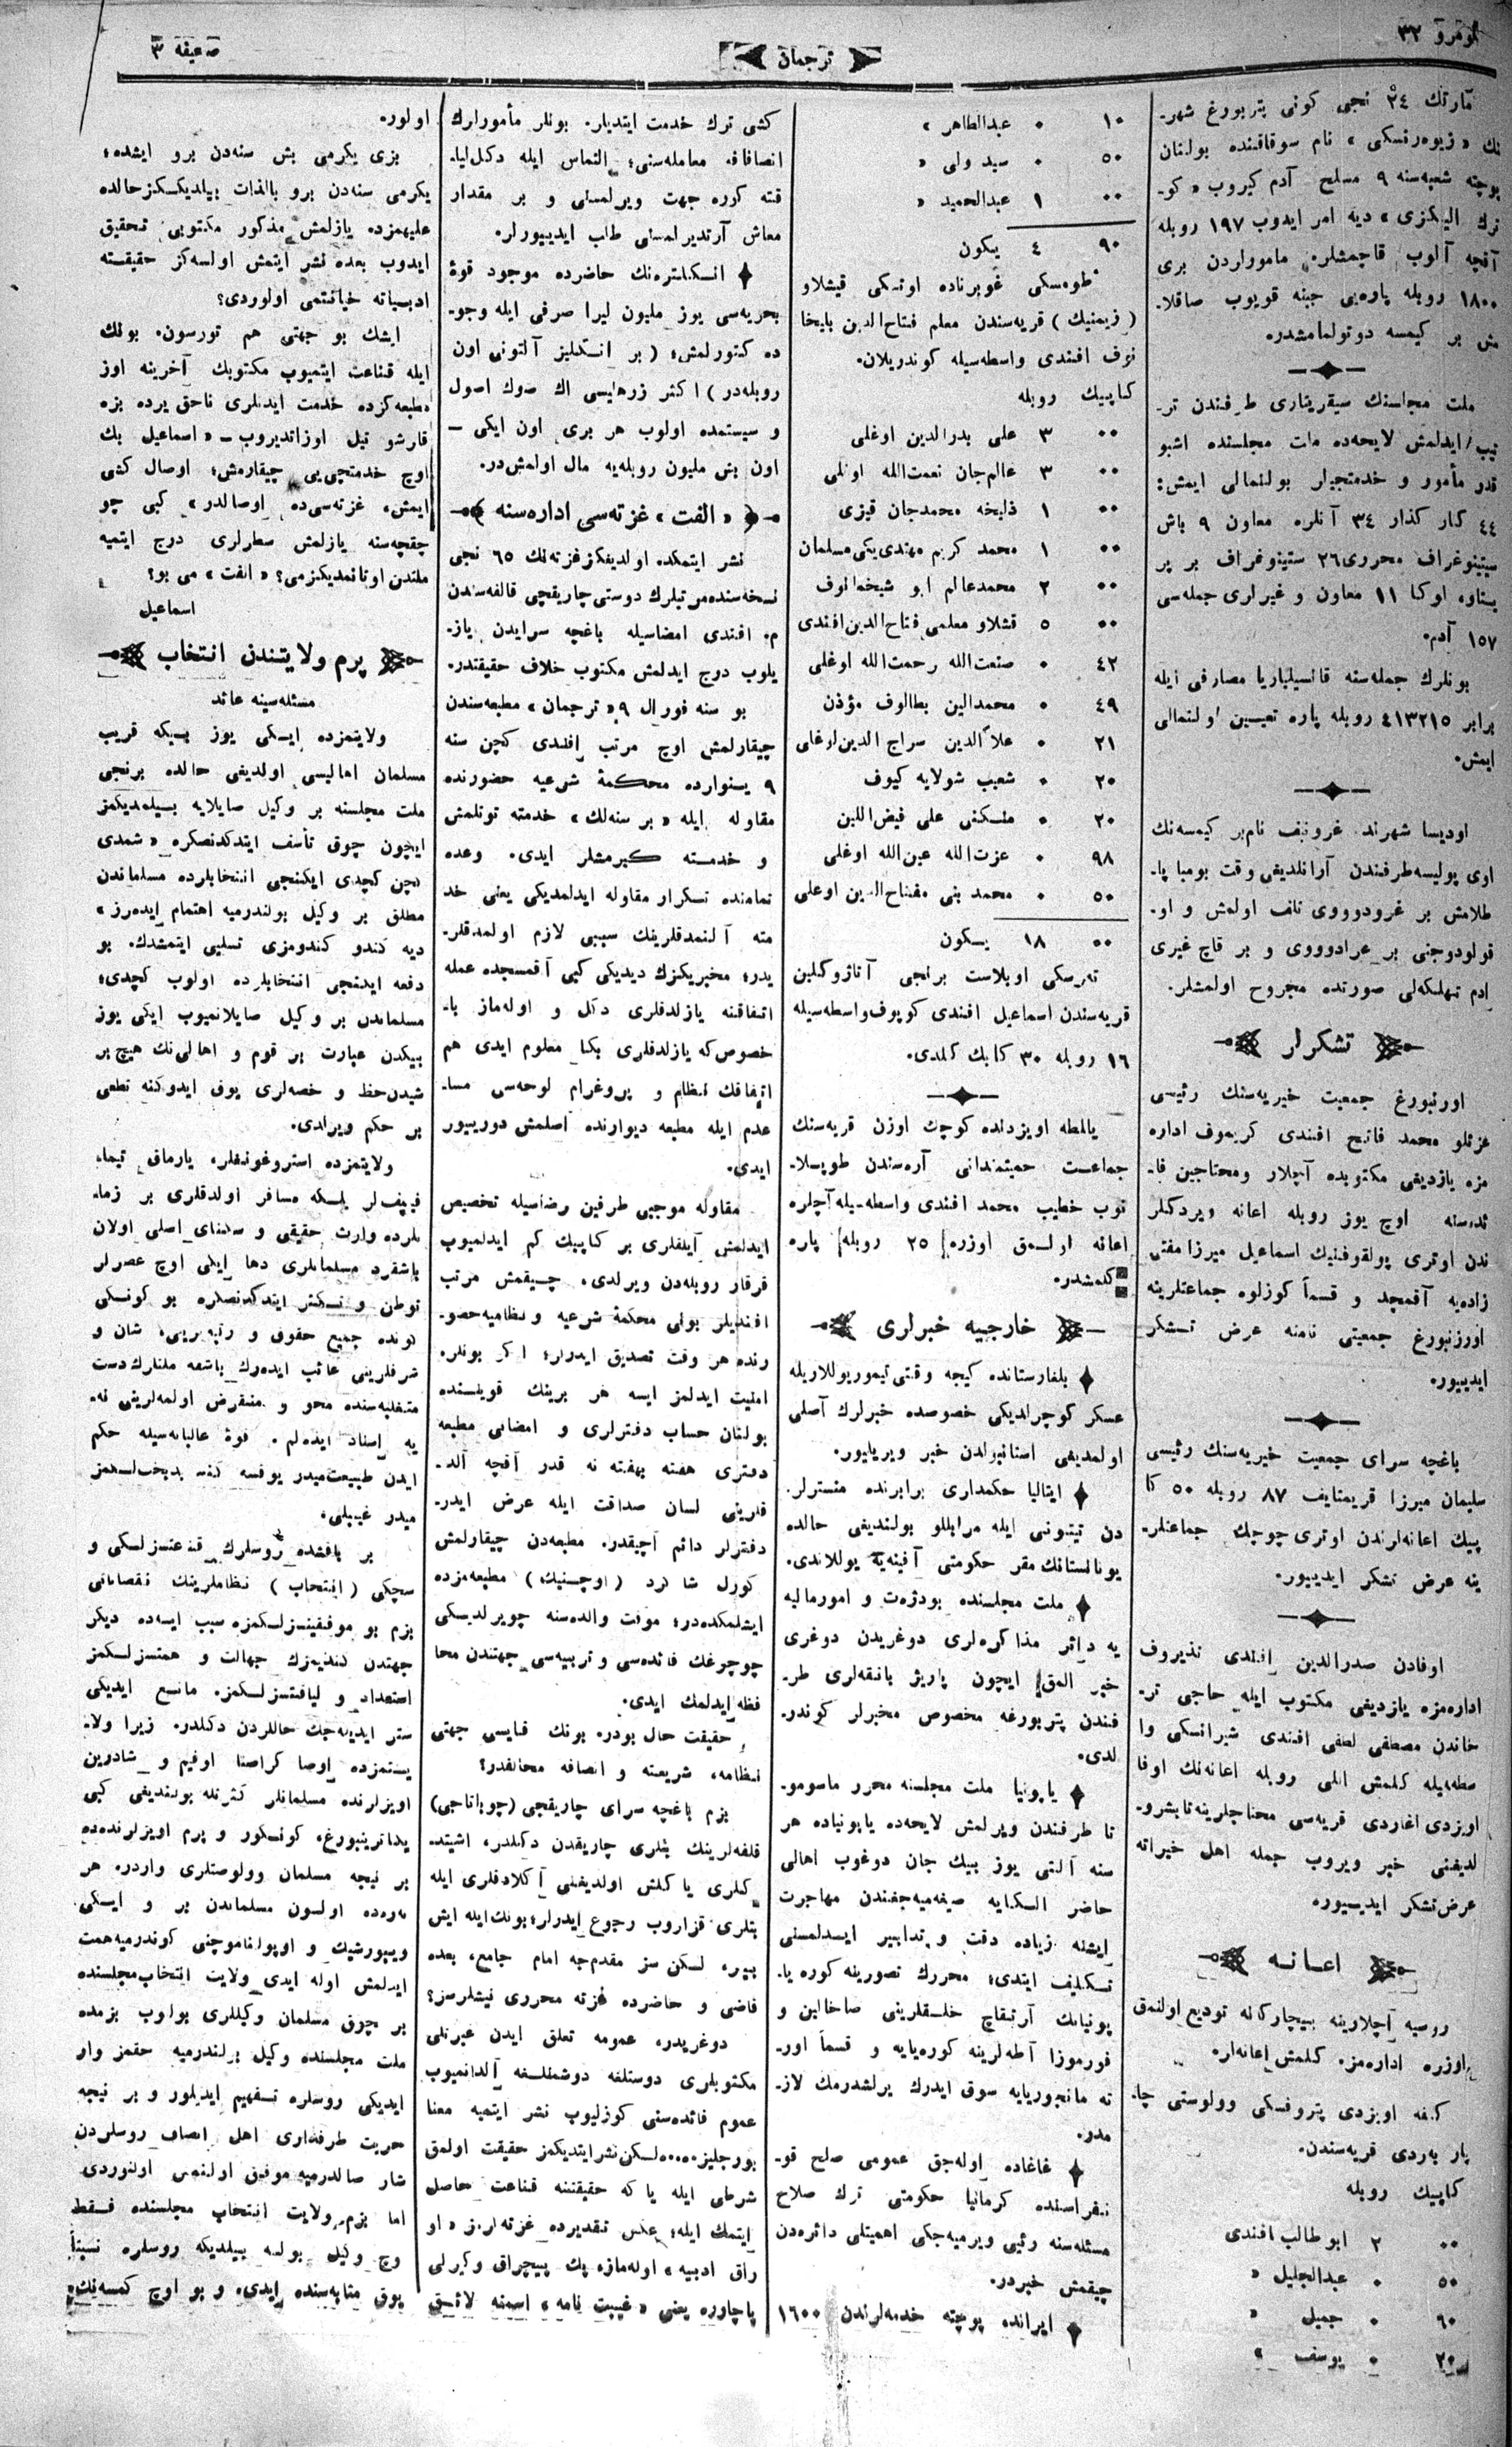 نومرو ٣٢
ترجمان
صحيفه ٣
مارتك ٢٤ نجى كونى پتربورغ شهر-
نك «زيوه‌رنسكى» نام سوقاقنده بولنان
پوچته شعبه‌سنه ٩ مسلح آدم كيروب «كو-
ترك اليكزى» ديه امر ايدوب ١٩٧ روبله
آقچه آلوب قاچمشلر. مامورلردن برى
١٨٠٠ روبله پاره‌يى جيبنه قويوب صاقلا-
مش بر كيمسه دوتولمامشدر.
ملت مجلسنك سيقريتارى طرفندن تر-
تيب ايدلمش لايحه‌ده ملت مجلسنده اشبو
قدر مأمور و خدمتجيلر بولنمالى ايمش:
٤٤ كار كذار ٣٤ آنلره معاون ٩ باش
ستينوغراف محررى ٢٦ ستينوغراف بر پر
يستاو، اوكا ١١ معاون و غيرلرى جمله‌سى
١٥٧ آدم.
بونلرك جمله‌سنه قانسيلياريا مصارفى ايله
برابر ٤١٣٢١٥ روبله پاره تعيين اولنمالى
ايمش.
اوديسا شهرنده غرونيف نام بر كيمسه‌نك
اوى پوليسه طرفندن آرانلديغى وقت بومبا پا-
طلامش بر غرودوووى تلف اولمش و او-
قولودوچنى بر غرادوووى و بر قاچ غيرى
ادم تهلكه‌لى صورتده مجروح اولمشلر.
تشكرلر
اورنبورغ جمعيت خيريه‌سنك رئيسى
عزتلو محمد فاتح افندى كريموف اداره
مزه يازديغى مكتوبده آچلار و محتاجين فا-
ئده‌سنه اوچ يوز روبله اعانه ويردكلر
ندن اوترى پولقوفنيك اسماعيل ميرزا مفتى
زاده‌يه آقمچد و قسماً كوزلوه جماعتلرينه
اورنبورغ جمعيتى نامنه عرض تشكر
ايدييور.
باغچه سراى جمعيت خيريه‌سنك رئيسى
سليمان ميرزا قريمتايف ٨٧ روبله ٥٠ كا
پيك اعانه‌لرندن اوترى چوچك جماعتلر-
ينه عرض تشكر ايدييور.
اوفادن صدرالدين افندى نذيروف
اداره‌مزه يازديغى مكتوب ايله حاجى تر-
خاندن مصطفى لطفى افندى شيرانسكى وا
سطه‌سيله كلمش اللى روبله اعانه‌نك اوفا
اويزدى اغاردى قريه‌سى محتاجلرينه تابشرو-
لديغنى خبر ويروب جمله اهل خيراته
عرض تشكر ايدييور.
اعانه
روسيه آچلارينه بيچاركانه توديع اولنمق
اوزره اداره‌مزه كلمش اعانه‌لر.
كفه اويزدى پتروفسكى وولوستى چا-
پار بردى قريه‌سندن.
كاپيك روبله
٠٠ ٢ ابو طالب افندى
٥٠ ٠ عبدالجليل «
٦٠ ٠ جميل «
٢٠ ٠ يوسف «
١٠ ٠ عبدالطاهر «
٥٠ ٠ سيد ولى «
٠٠ ١ عبدالحميد «
٩٠ ٤ يكون
طومسكى غوبرناده اوتسكى قيشلاو
(زيمنيك) قريه‌سندن معلم فتاح الدين بايخا
نوف افندى واسطه‌سيله كوندريلان.
كاپيك روبله
٠٠ ٣ على بدرالدين اوغلى
٠٠ ٣ عالم‌جان نعمت‌الله اوغلى
٠٠ ١ ذليخه محمدجان قيزى
٠٠ ١ محمد كريم مهتدى يكى مسلمان
٠٠ ٢ محمدعالم ابو شيخمانوف
٠٠ ٥ قشلاو معلمى فتاح الدين افندى
٤٢ ٠ صنعت‌الله رحمت‌الله اوغلى
٤٩ ٠ محمدالين بطالوف مؤذن
٢١ ٠ علاء‌الدين سراج الدين اوغلى
٢٠ ٠ شعيب شولايه كيوف
٢٠ ٠ مسكين على فيض‌الدين
٩٨ ٠ عزت‌الله عين‌الله اوغلى
٥٠ ٠ محمد بنى مفتاح‌الدين اوغلى
٠٠ ١٨ يكون
تورسكى اوبلاست برنجى آتازوكلين
قريه‌سندن اسماعيل افندى كوپوف واسطه‌سيله
١٦ روبله ٣٠ كاپك كلدى.
يالطه اويزدنده كوچك اوزن قريه‌سنك
جماعت حميتمندانى آره‌سندن طوپلا-
نوب خطيب محمد افندى واسطه‌سيله آچلره
اعانه اولمق اوزره ٢٥ روبله پاره
كلمشدر.
خارجيه خبرلرى
بلغارستانده كيجه وقتى تيموريوللاريله
عسكر كوچرلديكى خصوصده خبرلرك آصلى
اولمديغى استانبولدن خبر ويريليور.
ايتاليا حكمدارى برابرنده منسترلر-
دن تيتونى ايله مرابللو بولنديغى حالده
يونانستانك مقر حكومتى آفينه‌يه يوللاندى.
ملت مجلسنده بودژه‌ت و امورماليه
يه دائر مذاكره‌لرى دوغريدن دوغرى
خبر المق ايچون پاريژ بانقه‌لرى طر-
فندن پتربورغه مخصوص مخبرلر كوندر-
لدى.
ياپونيا ملت مجلسنه محرر ماسومو-
تا طرفندن ويرلمش لايحه‌ده ياپونياده هر
سنه آلتى يوز بيك جان دوغوب اهالى
حاضر السكنايه صيغميه‌جغندن مهاجرت
ايشنه زياده دقت و تدابير ايدلمسنى
تكليف ايتدى؛ محررك تصورينه كوره يا-
پونيانك آرتيقاچ خلقلرينى صاخالين و
فورموزا آطه‌لرينه كوره‌يايه و قسماً اور-
ته مانچوريايه سوق ايدرك يرلشدرمك لاز-
مدر.
غاغاده اوله‌جق عمومى صلح قو-
نفرانسنده كرمانيا حكومتى ترك صلاح
مسئله‌سنه رئيى ويرميه‌جكى اهميتلى دائره‌دن
چيقمش خبردر.
ايرانده پوچته خدمه‌لرندن ١٦٠٠
كشى ترك خدمت ايتديلر. بونلر مأمورلرك
انصافانه معامله‌سنى؛ التماس ايله دكل ليا-
قته كوره جهت ويرلمسنى و بر مقدار
معاش آرتديرلمسنى طلب ايدييورلر.
انكلتره‌نك حاضرده موجود قوهٔ
بحريه‌سى يوز مليون ليرا صرفى ايله وجو-
ده كتورلمش؛ (بر انكليز آلتونى اون
روبله‌در) اكثر زرهليسى اك صوك اصول
و سيستمده اولوب هر برى اون ايكى -
اون بش مليون روبله‌يه مال اولمش‌در.
«الفت» غزته‌سى اداره‌سنه
نشر ايتمكده اولديغكز غزته‌نك ٦٥ نجى
نسخه‌سنده مرتبلرك دوستى چاريقچى قالفه‌سندن
م. افندى امضاسيله باغچه سرايدن ياز-
يلوب درج ايدلمش مكتوب خلاف حقيقتدر.
بو سنه فورال ٩ «ترجمان» مطبعه‌سندن
چيقارلمش اوچ مرتب افندى كچن سنه
٩ يسنوارده محكمهٔ شرعيه حضورنده
مقاوله ايله «بر سنه‌لك» خدمته توتلمش
و خدمته كيرمشلر ايدى. وعده
تمامنده تكرار مقاوله ايدلمديكى يعنى خد
مته آلنمدقلرينك سببى لازم اولمدقلر-
يدر؛ مخبريكزك ديديكى كبى آقمسجده عمله
اتفاقنه يازلدقلرى دكل و اوله‌ماز با-
خصوص‌كه يازلدقلرى بكا معلوم ايدى هم
اتفاقك نظام و پروغرام لوحه‌سى مسا-
عدم ايله مطبعه ديوارنده آصلمش دورييور
ايدى.
مقاوله موجبى طرفين رضاسيله تخصيص
ايدلمش آيلقلرى بر كاپيك كم ايدلميوب
قرقار روبله‌دن ويرلدى. چيقمش مرتب
افنديلر بونى محكمهٔ شرعيه و نظاميه حضو-
رنده هر وقت تصديق ايدرلر؛ اكر بونلره
امنيت ايدلمز ايسه هر برينك قوينسنده
بولنان حساب دفترلرى و امضالى مطبعه
دفترى هفته بهفته نه قدر آقچه آلد-
قلرينى لسان صداقت ايله عرض ايدر-
دفترلر دائم آچيقدر. مطبعه‌دن چيقارلمش
كوزل شاكرد (اوچنيك) مطبعه‌مزده
ايشلمكده‌در؛ موقت والده‌سنه چويرلديكى
چوچوغك فائده‌سى و تربيه‌سى جهتندن محا
فظه ايدلمك ايدى.
حقيقت حال بودر. بونك قنايسى جهتى
نظامه، شريعته و انصافه مخالفدر؟
بزم باغچه سراى چاريقچى (چوباتاجى)
قلفه‌لرينك پتلرى چاريقدن دكلدر، اشيتد-
كلرى ياكلش اولديغنى آكلادقلرى ايله
بتلرى قزاروب رجوع ايدرلر؛ بونك ايله ايش
بيتر، لكن سز مقدم‌جه امام جامع، بعده
قاضى و حاضرده غزته محررى نيشلرسز؟
دوغريدر، عمومه تعلق ايدن عبرتلى
مكتوبلرى دوستلغه دوشمنلغه آلدانميوب
عموم فائده‌سنى كوزليوب نشر ايتميه معنا
بورجليز.....لكن نشر ايتديكمز حقيقت اولمق
شرطى ايله ياكه حقيقتننه قناعت حاصل
ايتمك ايله؛ عكس تقديرده غزته‌لريز «او
راق ادبيه» اوله‌ماز، پك پيچراق وكيرلى
پاچاوره يعنى «غيبت نامه» اسمنه لائق
اولور.
بزى يكرمى بش سنه‌دن برو ايشده؛
يكرمى سنه‌دن برو بالذات بيلديككز حالده
عليهمزده يازلمش مذكور مكتوبى تحقيق
ايدوب بعده نشر ايتمش اولسه‌كز حقيقته
ادبياته خيانتمى اولوردى؟
ايشك بو جهتى هم تورسون. بونك
ايله قناعت ايتميوب مكتوبك آخرينه اوز
مطبعه‌كزده خدمت ايدنلرى ناحق يرده بزه
قارشو تيل اوزاتديروب - «اسماعيل بك
اوچ خدمتچى‌يى چيقارمش؛ اوصال كشى
ايمش، غزته‌سى‌ده اوصالدر» كبى چو
چقچه‌سنه يازلمش سطرلرى درج ايتميه
ملتدن اوتانمديكزمى؟ «الفت» مى بو؟
اسماعيل
پرم ولايتندن انتخاب
مسئله‌سينه عائد
ولايتمزده ايكى يوز بيكه قريب
مسلمان اهاليسى اولديغى حالده برنجى
ملت مجلسنه بر وكيل صايلايه بيلمديكمز
ايچون چوق تأسف ايتدكدنصكره «شمدى
كچن كچدى ايكنجى انتخابلرده مسلماندن
مطلق بر وكيل بولندرميه اهتمام ايده‌رز»
ديه كندو كندومزى تسلى ايتمشدك. بو
دفعه ايكنجى انتخابلرده اولوب كچدى؛
مسلماندن بر وكيل صايلانميوب ايكى يوز
بيكدن عبارت بر قوم و اهالى‌نك هيچ بر
شيدن حظ و خصه‌لرى يوق ايدوكنه قطعى
بر حكم ويرلدى.
ولايتمزده استروغونفلر، يارماق تيما-
فييف‌لر يلكه مسافر اولدقلرى بر زما-
نلرده وارث حقيقى و سكناى اصلى اولان
باشقرد مسلمانلرى دها ايكى اوچ عصرلر
توطن و تسكن ايتدكدنصكره بو كونكى
كونده جميع حقوق و رتبه‌رينى، شان و
شرفلرينى غائب ايده‌رك باشقه ملتلرك دست
متغلبه‌سنده محو و منقرض اولمه‌لرينى نه-
يه اسناد ايده‌لم. قوهٔ عالبانه‌سيله حكم
ايدن طبيعت‌ميدر يوقسه كندى بدبختلكمز
ميدر غيبلى.
بر باقشده روسلرك قناعتسزلكى و
سچكى (انتخاب) نظاملرينك نقصانلغى
بزم بو موفقيتسزلكمزه سبب ايسه‌ده ديكر
جهتدن كنديمزك جهالت و همتسزلكمز
استعداد و لياقتسزلكمز. مانع ايديكى
ستر ايديله‌جك حاللردن دكلدر. زيرا ولا-
يتمزده اوصا كراصنا اوفيم و شادرين
اويزلرنده مسلمانلر كثرتله بولنديغى كبى
يكاترينبورغ، كونكور و پرم اويزلرنده‌ده
بر نيجه مسلمان وولوستلرى واردر. هر
نره‌ده اولسون مسلماندن بر و ايكى
ويبورشيك و اوپولناموچنى كوندرميه همت
ايدلمش اوله ايدى ولايت انتخاب مجلسنده
بر چوق مسلمان وكيللرى بولوب بزمده
ملت مجلسنده وكيل بولندرميه حقمز وار
ايديكى روسلره تفهيم ايديلور و بر نيجه
حريت طرفدارى اهل انصاف روسلردن
شار صالدرميه موفق اولنمق اولنوردى
اما بزم ولايت انتخاب مجلسنده فقط
وچ وكيل بولنه بيلديكه روسلره نسبتاً
يوق مثابه‌سنده ايدى. و بو اوچ كمسه‌نك